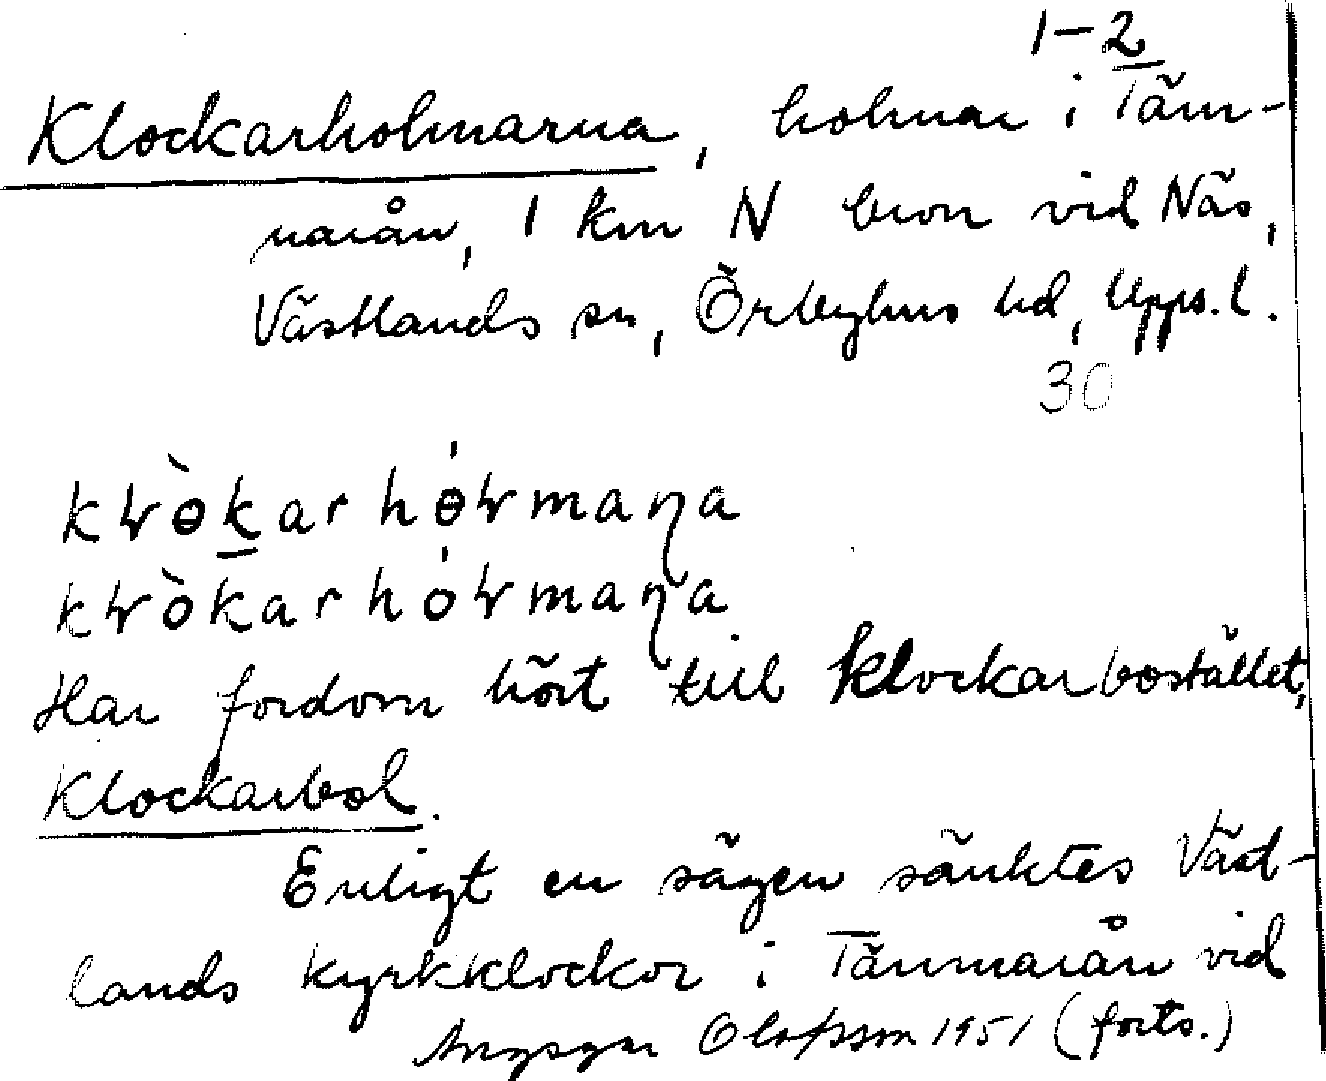 1–2
Klockarholmarna, holmar i Täm-
narån, 1 km N bron vid Näs,
Västlands sn, Örbyhus hd, Upps. l.
30
Har fordom hört till klockarbostället,
Klockarbol.
Enligt en sägen sänktes Väst-
lands kyrkklockor i Tämnarån vid
Olofsson 1951 (forts.)